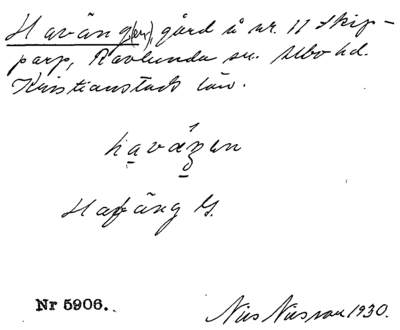 Haväng(en), gård å nr. 11 Skip-
parp, Ravlunda sn. Albo hd.
Kristianstads län.
haväŋen
Hafäng G.
Nr 5906.
Nils Nilsson 1930.